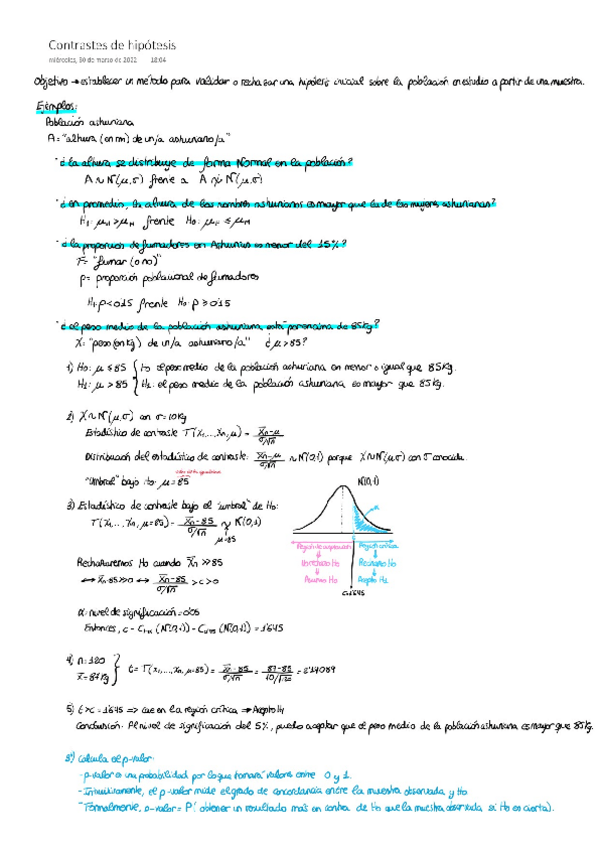 Contrastes de hipótesis
miércoles, 30 de marzo de 2022 18:04
Objetivo → establecer un método para validar o rechazar una hipótesis inicial sobre la población en estudio a partir de una muestra.
Ejemplos:
Población asturiana
A = "altura (en cm) de un/a asturiano/a"
¿la altura se distribuye de forma Normal en la población?
A ~ N(μ,σ) frente a A ≁ N(μ,σ)
¿en promedio, la altura de los hombres asturianos es mayor que la de las mujeres asturianas?
H₁: μH > μM frente H₀: μH ≤ μM
¿la proporción de fumadores en Asturias es menor del 15%?
F = "fumar (o no)"
p = proporción poblacional de fumadores
H₁: p < 0'15 frente H₀: p ≥ 0'15
¿el peso medio de la población asturiana está por encima de 85kg?
X: "peso (en kg) de un/a asturiano/a" ¿μ > 85?
1) H₀: μ ≤ 85 { H₀: el peso medio de la población asturiana es menor o igual que 85kg.
H₁: μ > 85 { H₁: el peso medio de la población asturiana es mayor que 85kg.
2) X ~ N(μ,σ) con σ = 10kg
Estadístico de contraste T(x₁,...,xₙ,μ) = x̄ₙ-μ / σ/√n
Distribución del estadístico de contraste: x̄ₙ-μ / σ/√n ~ N(0,1) porque X ~ N(μ,σ) con σ conocida.
"Umbral" bajo H₀: μ = 85
N(0,1)
3) Estadístico de contraste bajo el "umbral" de H₀:
T(x₁,...,xₙ,μ=85) = x̄ₙ-85 / σ/√n ~ N(0,1)
μ=85
Región de aceptación Región crítica
Rechazaremos H₀ cuando x̄ₙ >> 85
No rechazo H₀ Rechazo H₀
↔ x̄ₙ-85 >> 0 ↔ x̄ₙ-85 / σ/√n > c > 0
Asumo H₀ Acepto H₁
c=1'645
α: nivel de significación = 0'05
Entonces, c = C₁₋α (N(0,1)) = C₀'₉₅ (N(0,1)) = 1'645
4) n = 120
x̄ = 87kg } t = T(x₁,...,xₙ,μ=85) = x̄ₙ-85 / σ/√n = 87-85 / 10/√120 = 2'19089
5) t > c = 1'645 => cae en la región crítica → Acepto H₁
Conclusión: Al nivel de significación del 5%, puedo aceptar que el peso medio de la población asturiana es mayor que 85kg.
5') Calcula el p-valor:
-p-valor es una probabilidad por lo que tomará valores entre 0 y 1.
-Intuitivamente, el p-valor mide el grado de concordancia entre la muestra observada y H₀.
-Formalmente, p-valor = P (obtener un resultado más en contra de H₀ que la muestra observada si H₀ es cierta).